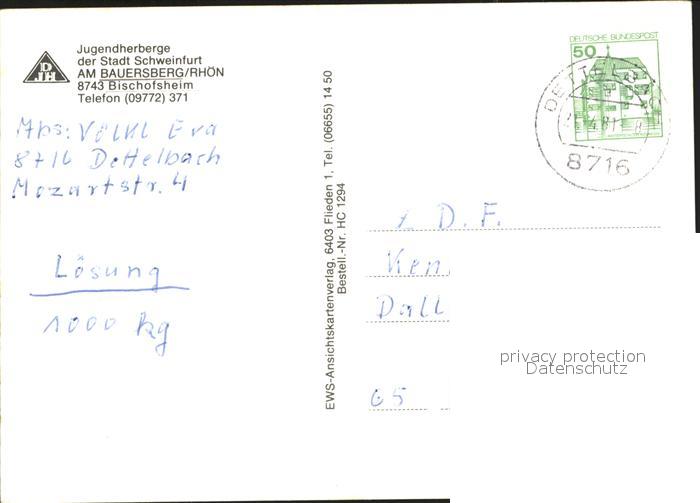 DJH
Jugendherberge
der Stadt Schweinfurt
AM BAUERSBERG/RHÖN
8743 Bischofsheim
Telefon (09772) 371
Abs: Völkl Eva
8716 Dettelbach
Mozartstr. 4
Lösung
1000 kg
EWS-Ansichtskartenverlag, 6403 Flieden 1, Tel. (06655) 14 50
Bestell.-Nr. HC 1294
DEUTSCHE BUNDESPOST
50
8716
Z D. F.
Ken
Dall
65
privacy protection
Datenschutz